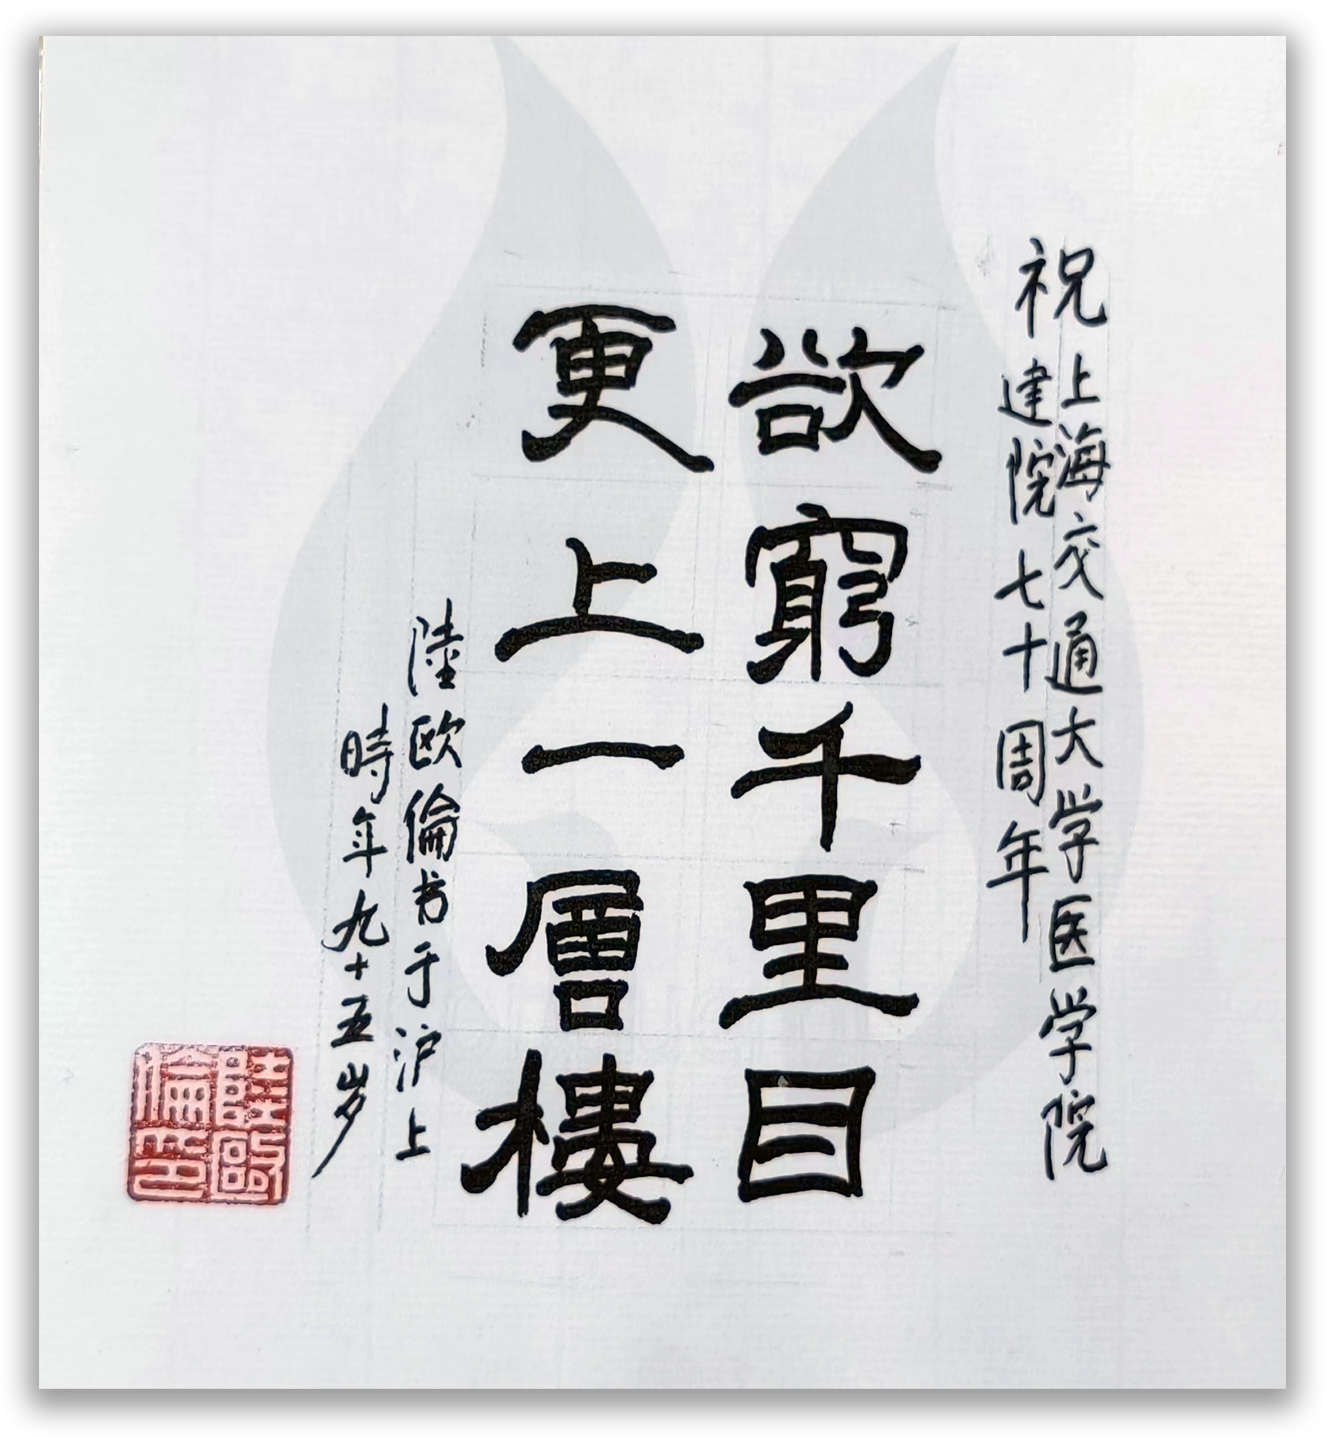 祝上海交通大学医学院
建院七十周年
欲窮千里目
更上一層樓
陸欧倫书于沪上
時年九十五岁
陸歐
倫印